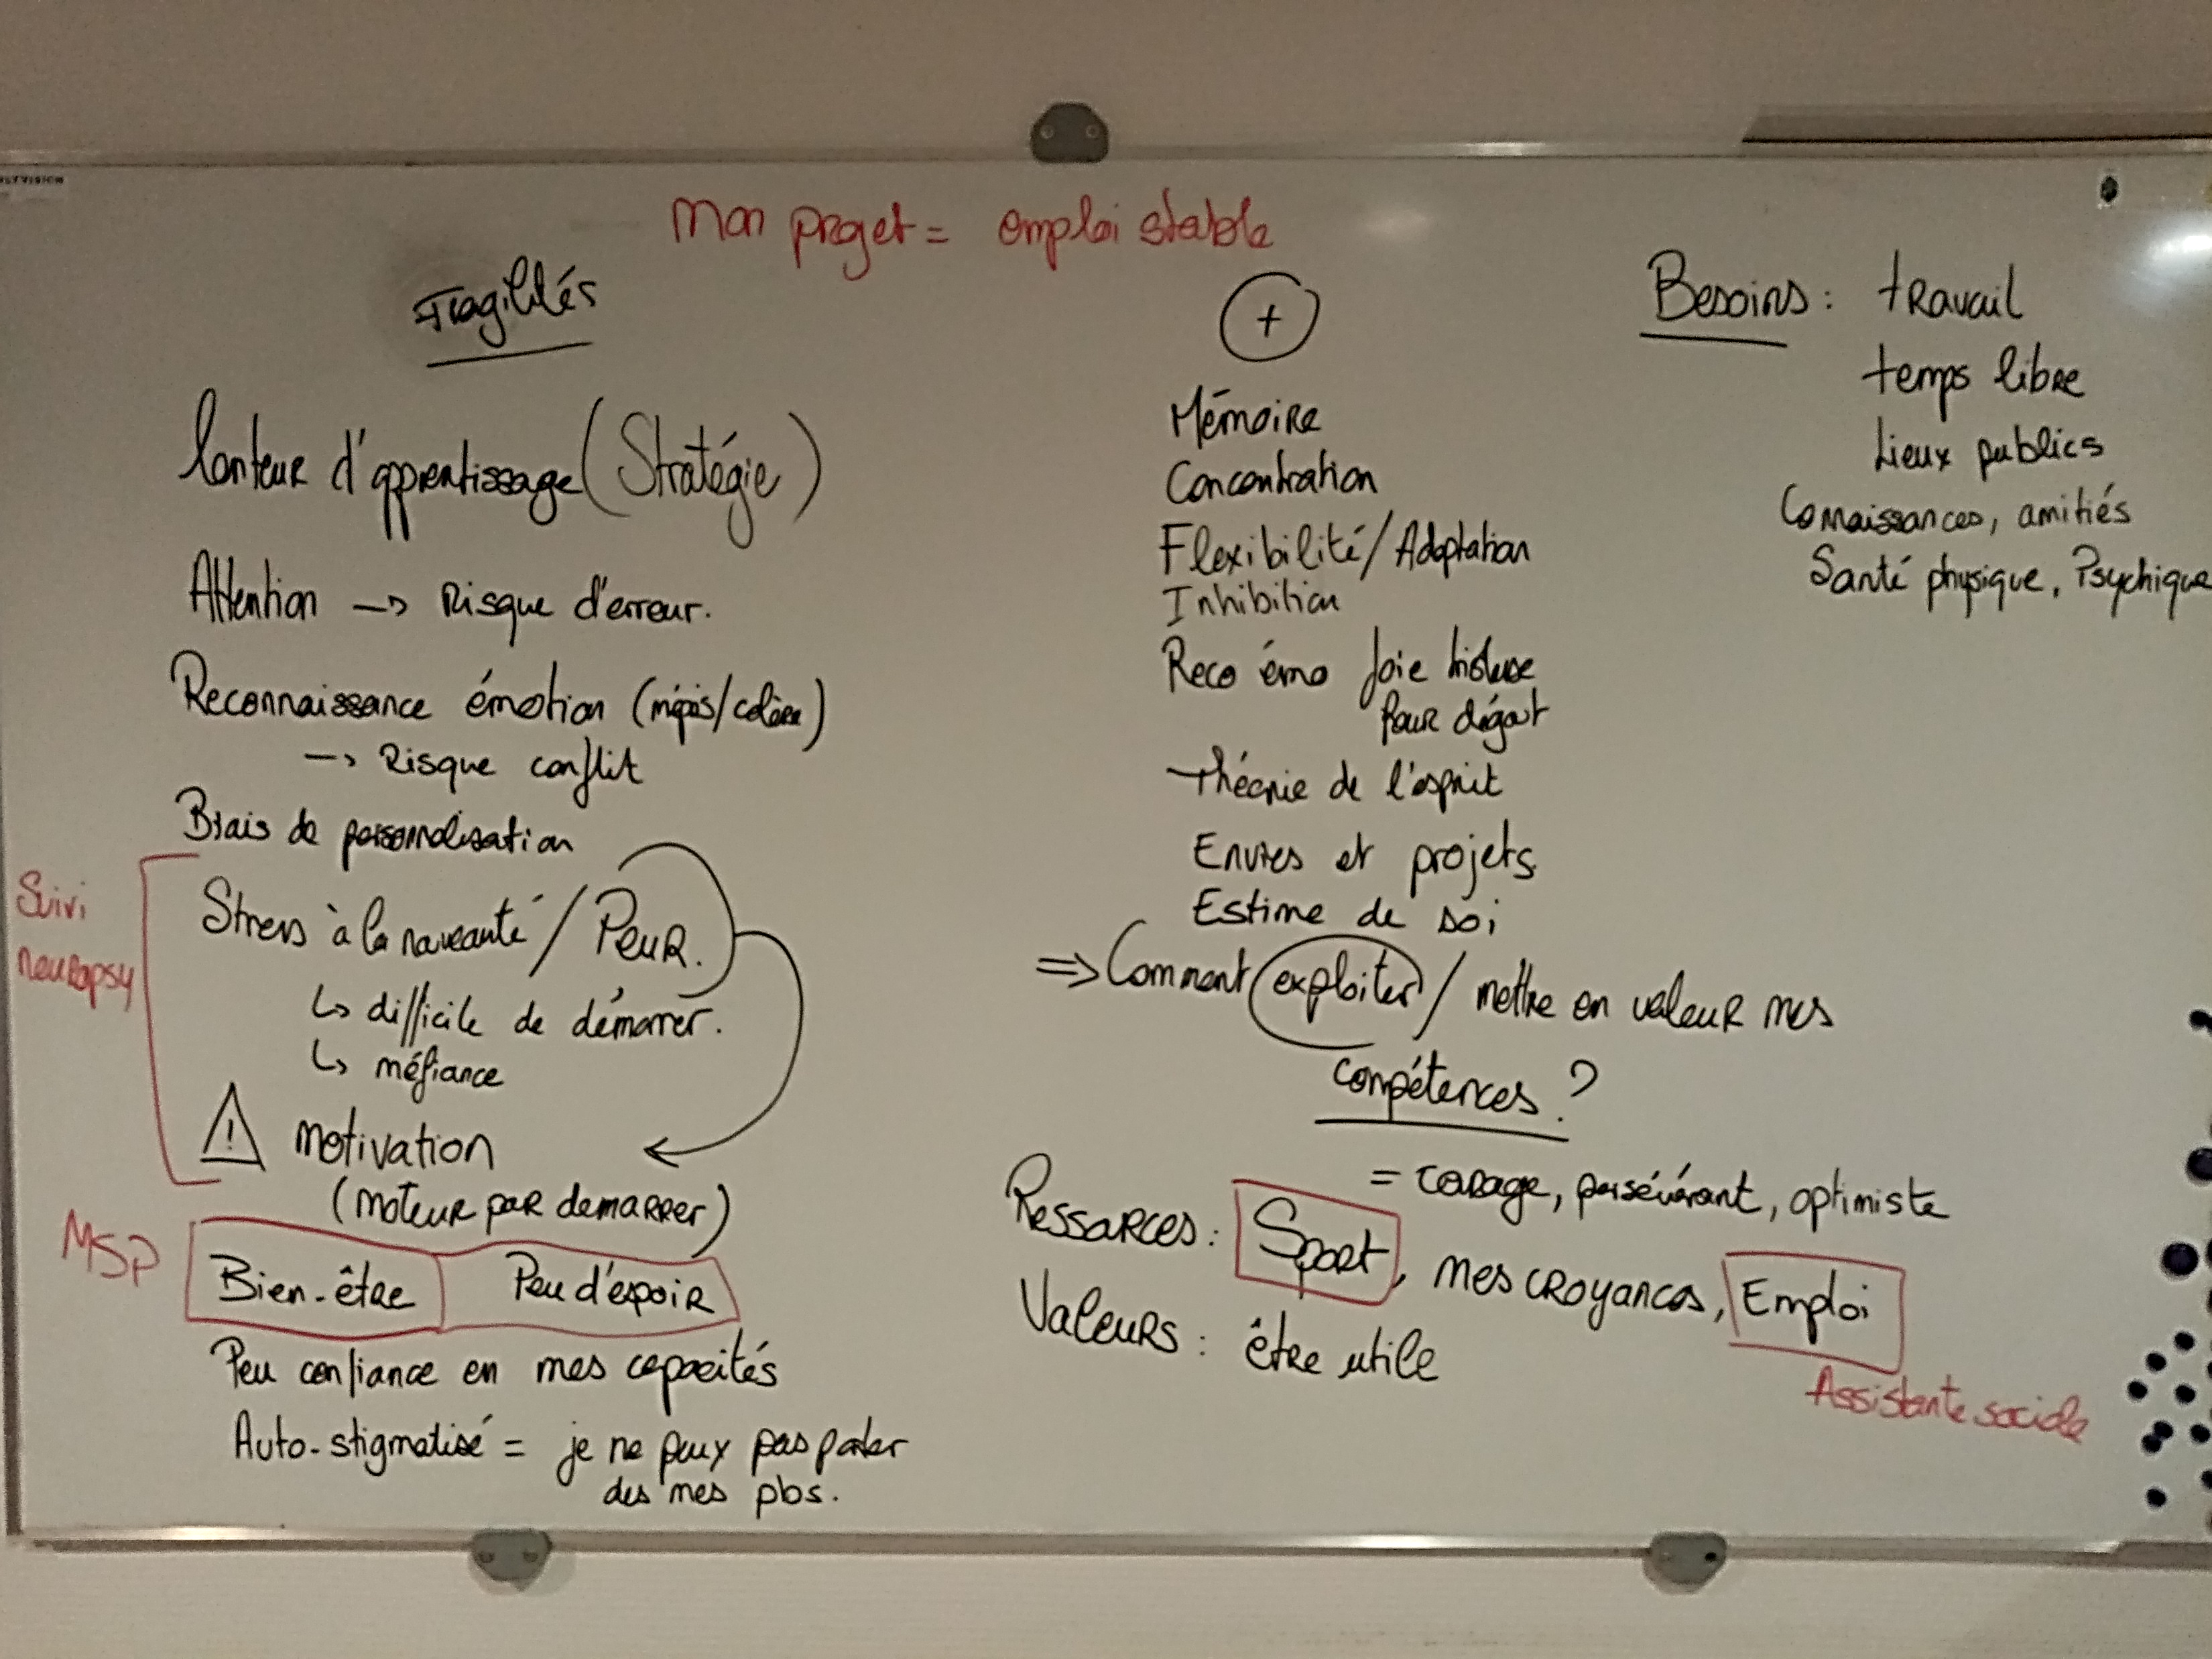 Mon projet = emploi stable
Fragilités
Lenteur d'apprentissage (Stratégie)
Attention → Risque d'erreur.
Reconnaissance émotion (mépris/colère)
→ Risque conflit
Biais de personnalisation
Suivi
neuropsy
Stress à la nouveauté / Peur.
↳ difficile de démarrer.
↳ méfiance
! motivation
(moteur par demarrer)
MSP
Bien-être Peu d'espoir
Peu confiance en mes capacités
Auto-stigmatisé = je ne peux pas parler
des mes pbs.
+
Mémoire
Concentration
Flexibilité/Adaptation
Inhibition
Reco émo Joie tristesse
Peur dégout
théorie de l'esprit
Envies et projets
Estime de soi
⇒ Comment exploiter / mettre en valeur mes
compétences ?
= courage, persévérant, optimiste
Ressources : Sport, mes croyances, Emploi
Assistante sociale
Valeurs : être utile
Besoins : travail
temps libre
Lieux publics
Connaissances, amitiés
Santé physique, Psychique